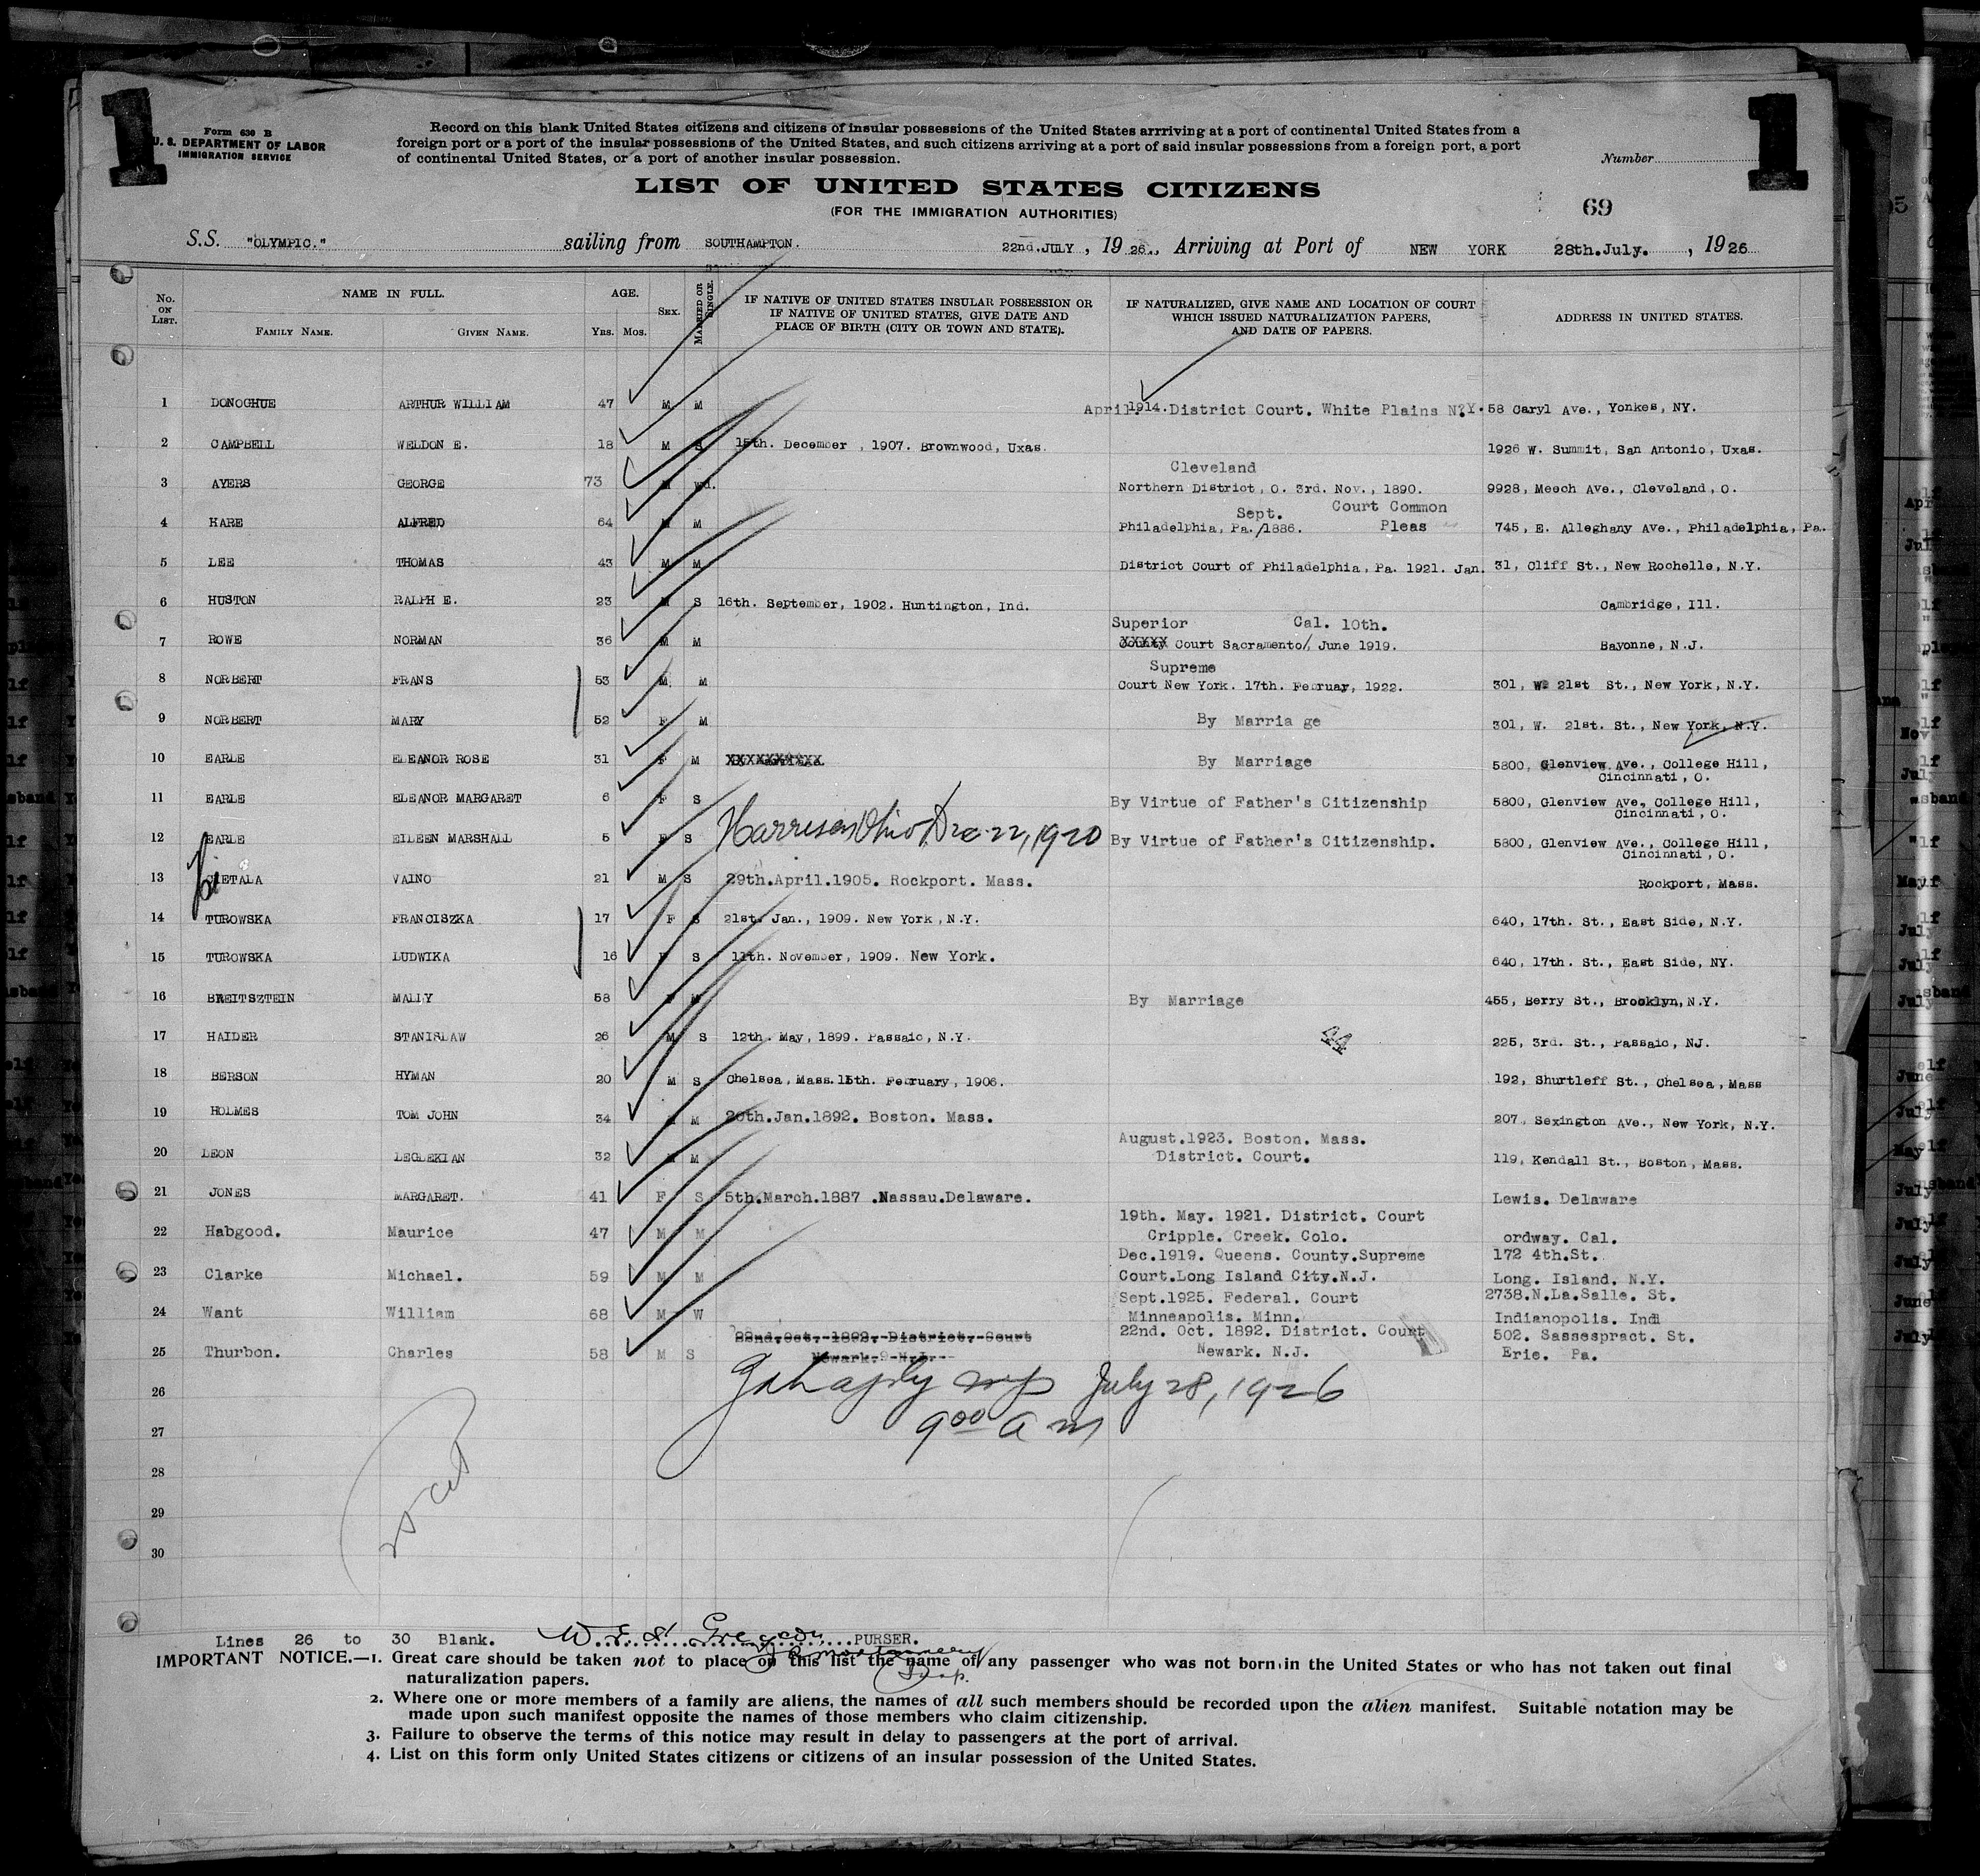 1
1
Form 630 B
U. S. DEPARTMENT OF LABOR
IMMIGRATION SERVICE
Record on this blank United States citizens and citizens of insular possessions of the United States arrriving at a port of continental United States from a
foreign port or a port of the insular possessions of the United States, and such citizens arriving at a port of said insular possessions from a foreign port, a port
of continental United States, or a port of another insular possession.
Number
LIST OF UNITED STATES CITIZENS
(FOR THE IMMIGRATION AUTHORITIES)
69
S.S. "OLYMPIC." sailing from SOUTHAMPTON. 22nd.JULY, 1926., Arriving at Port of NEW YORK 28th.July., 1926
No. ON LIST. NAME IN FULL. AGE. SEX. MARRIED OR SINGLE. IF NATIVE OF UNITED STATES INSULAR POSSESSION OR IF NATIVE OF UNITED STATES, GIVE DATE AND PLACE OF BIRTH (CITY OR TOWN AND STATE). IF NATURALIZED, GIVE NAME AND LOCATION OF COURT WHICH ISSUED NATURALIZATION PAPERS, AND DATE OF PAPERS. ADDRESS IN UNITED STATES.
FAMILY NAME. GIVEN NAME. Yrs. Mos.
1 DONOGHUE ARTHUR WILLIAM 47 M M April.1914.District Court. White Plains N.Y. 58 Caryl Ave., Yonkes, NY.
2 CAMPBELL WELDON E. 18 M S 15th. December , 1907. Brownwood, Uxas. 1926 W. Summit, San Antonio, Uxas.
Cleveland
3 AYERS GEORGE 73 M Wd. Northern District, O. 3rd. Nov., 1890. 9928, Meech Ave., Cleveland, O.
Sept. Court Common
4 HARE ALFRED 64 M M Philadelphia, Pa./1886. Pleas 745, E. Alleghany Ave., Philadelphia, Pa.
5 LEE THOMAS 43 M M District Court of Philadelphia, Pa. 1921. Jan. 31, Cliff St., New Rochelle, N.Y.
6 HUSTON RALPH E. 23 M S 16th. September, 1902. Huntington, Ind. Cambridge, Ill.
Superior Cal. 10th.
7 ROWE NORMAN 36 M M XXXXX Court Sacramento/, June 1919. Bayonne, N.J.
Supreme
8 NORBERT FRANS 53 M M Court New York. 17th. Februay, 1922. 301, W. 21st St., New York, N.Y.
9 NORBERT MARY 52 F M By Marria ge 301, W. 21st. St., New York, N.Y.
10 EARLE ELEANOR ROSE 31 F M XXXXXXXXXX By Marriage 5800, Glenview Ave., College Hill,
Cincinnati, O.
11 EARLE ELEANOR MARGARET 6 F S By Virtue of Father's Citizenship 5800, Glenview Ave., College Hill,
Cincinnati, O.
12 EARLE EILEEN MARSHALL 5 F S Harrison Ohio Dec 22, 1920 By Virtue of Father's Citizenship. 5800, Glenview Ave., College Hill,
Cincinnati, O.
13 VAINO 21 M S 29th.April.1905. Rockport. Mass. Rockport, Mass.
14 TUROWSKA FRANCISZKA 17 F S 21st. Jan., 1909. New York, N.Y. 640, 17th. St., East Side, N.Y.
15 TUROWSKA LUDWIKA 16 F S 11th. November, 1909. New York. 640, 17th. St., East Side, NY.
16 BREITSZTEIN MALLY 58 F M By Marriage 455, Berry St., Brooklyn, N.Y.
17 HAIDER STANISLAW 26 M S 12th. May, 1899. Passaic, N.Y. 44 225, 3rd. St., Passaic, NJ.
18 BERSON HYMAN 20 M S Chelsea, Mass. 15th. February, 1906. 192, Shurtleff St., Chelsea, Mass
19 HOLMES TOM JOHN 34 M M 20th.Jan.1892. Boston. Mass. 207, Sexington Ave., New York, N.Y.
August.1923. Boston. Mass.
20 LEON LEGLEKIAN 32 M M District. Court. 119, Kendall St., Boston, Mass.
21 JONES MARGARET. 41 F S 5th.March.1887 .Nassau.Delaware. Lewis. Delaware
19th. May. 1921. District. Court
22 Habgood. Maurice 47 M M Cripple. Creek. Colo. ordway. Cal.
Dec.1919. Queens. County.Supreme 172 4th.St.
23 Clarke Michael. 59 M M Court.Long Island City.N.J. Long. Island. N.Y.
Sept.1925. Federal. Court 2738.N.La.Salle. St.
24 Want William 68 M W Minneapolis. Minn. Indianopolis. Ind
22nd.Oct. 1892. District. Court 22nd. Oct. 1892. District. Court 502. Sassespract. St.
25 Thurbon. Charles 58 M S Newark. N.J. Newark. N.J. Erie. Pa.
26 July 28, 1926
27 9 00 a m
28
29
30
Lines 26 to 30 Blank. PURSER.
IMPORTANT NOTICE.—1. Great care should be taken not to place on this list the name of any passenger who was not born in the United States or who has not taken out final
naturalization papers.
2. Where one or more members of a family are aliens, the names of all such members should be recorded upon the alien manifest. Suitable notation may be
made upon such manifest opposite the names of those members who claim citizenship.
3. Failure to observe the terms of this notice may result in delay to passengers at the port of arrival.
4. List on this form only United States citizens or citizens of an insular possession of the United States.